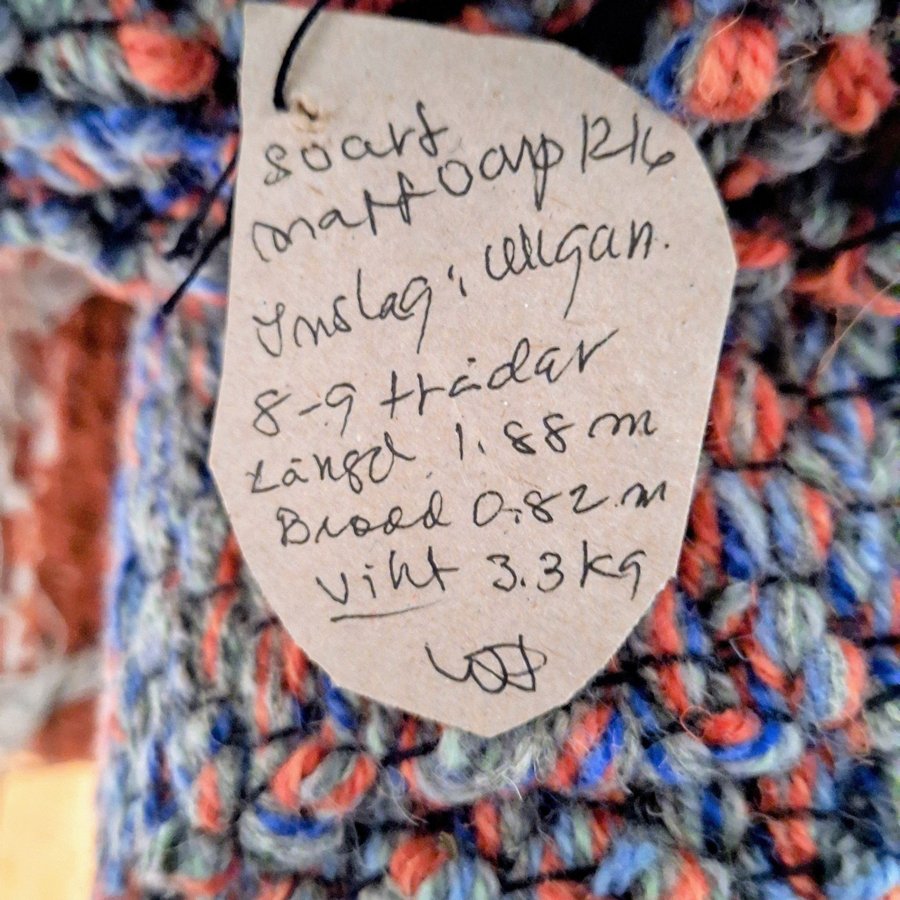 svart
mattvarp 12/6
Inslag: ullgarn.
8-9 trådar
Längd. 1.88 m
Bredd 0.82 m
vikt 3.3 kg